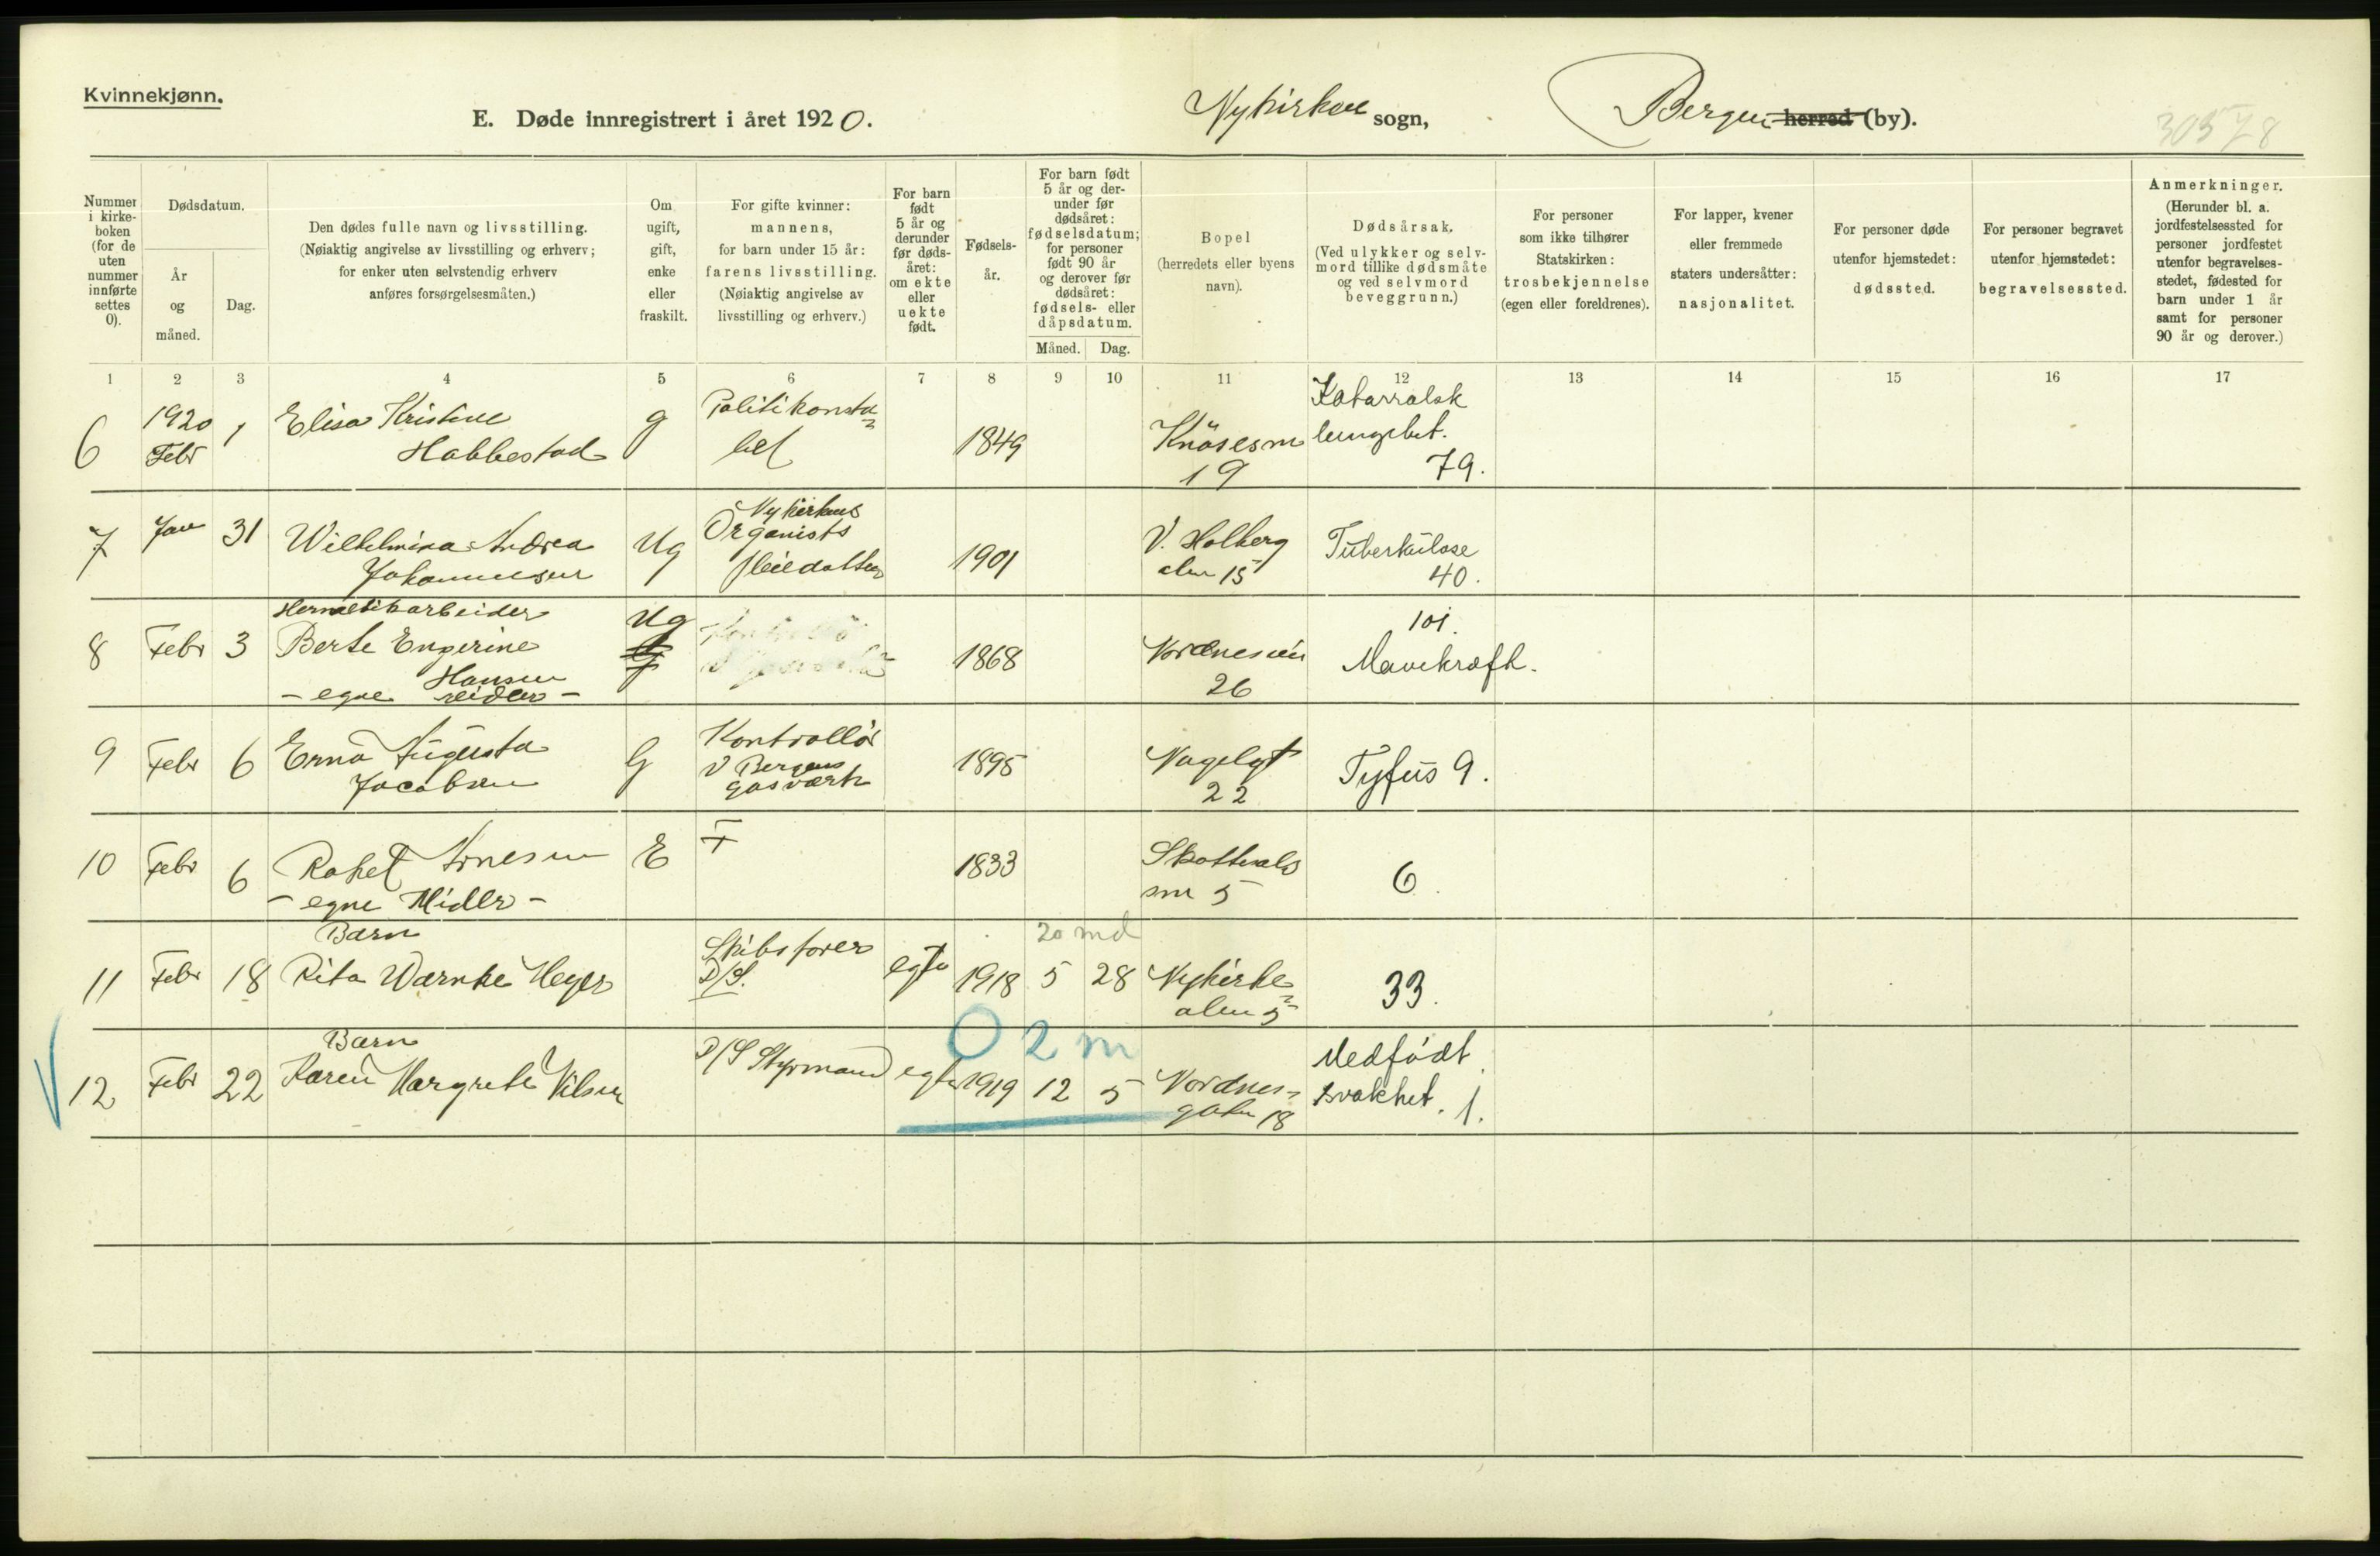 Kvinnekjønn.
E. Døde innregistrert i året 1920.
Nykirken sogn,
Bergen herred (by).
30578
Nummer i kirke-boken (for de uten nummer innførte settes 0).
Dødsdatum.
År og måned.
Dag.
Den dødes fulle navn og livsstilling.
(Nøiaktig angivelse av livsstilling og erhverv;
for enker uten selvstendig erhverv
anføres forsørgelsesmåten.)
Om ugift, gift, enke eller fraskilt.
For gifte kvinner:
mannens,
for barn under 15 år:
farens livsstilling.
(Nøiaktig angivelse av
livsstilling og erhverv.)
For barn født 5 år og derunder før døds-året: om ekte eller uekte født.
Fødsels-år.
For barn født 5 år og der-under før dødsåret: fødselsdatum; for personer født 90 år og derover før dødsåret: fødsels- eller dåpsdatum.
Måned.
Dag.
Bopel
(herredets eller byens
navn).
Dødsårsak.
(Ved ulykker og selv-
mord tillike dødsmåte
og ved selvmord
beveggrunn.)
For personer
som ikke tilhører
Statskirken:
trosbekjennelse
(egen eller foreldrenes).
For lapper, kvener
eller fremmede
staters undersåtter:
nasjonalitet.
For personer døde
utenfor hjemstedet:
dødssted.
For personer begravet
utenfor hjemstedet:
begravelsessted.
Anmerkninger.
(Herunder bl. a.
jordfestelsessted for
personer jordfestet
utenfor begravelses-
stedet, fødested for
barn under 1 år
samt for personer
90 år og derover.)
1 2 3 4 5 6 7 8 9 10 11 12 13 14 15 16 17
6 1920 Febr 1 Elisa Kristine Habbestad g Politikonsta=bel 1849 Knösesm 19 Katarralsk lungebet. 79.
7 Jan 31 Wilhelmina Andrea Johannesen Ug Nykirkens Organists 1901 V. Holberg alm 15 Tuberkulose 40.
8 Febr 3 Hermetikarbeider Berte Engerine Hansen - egne midler - Ug 1868 Nordnesvei 26 101. Mavekræft.
9 Febr 6 Erna Augusta Jacobsen G Kontrollör v Bergens Gasværk 1895 Nagelgt 22 Tyfus 9.
10 Febr 6 Rakel Arnesen - egne Midler - E 1833 Skottesals sm 5 6.
11 Febr 18 Barn Rita Warnke Heyer Skibsfører D/S. egte 1918 5 28 20 md Nykirke=alm 5 33.
12 Febr 22 Barn Karen Margrethe Nilsen D/S Styrmand egte 1919 12 5 0 2 m Nordnes=gaten 18 Medfødt svakhet. 1.